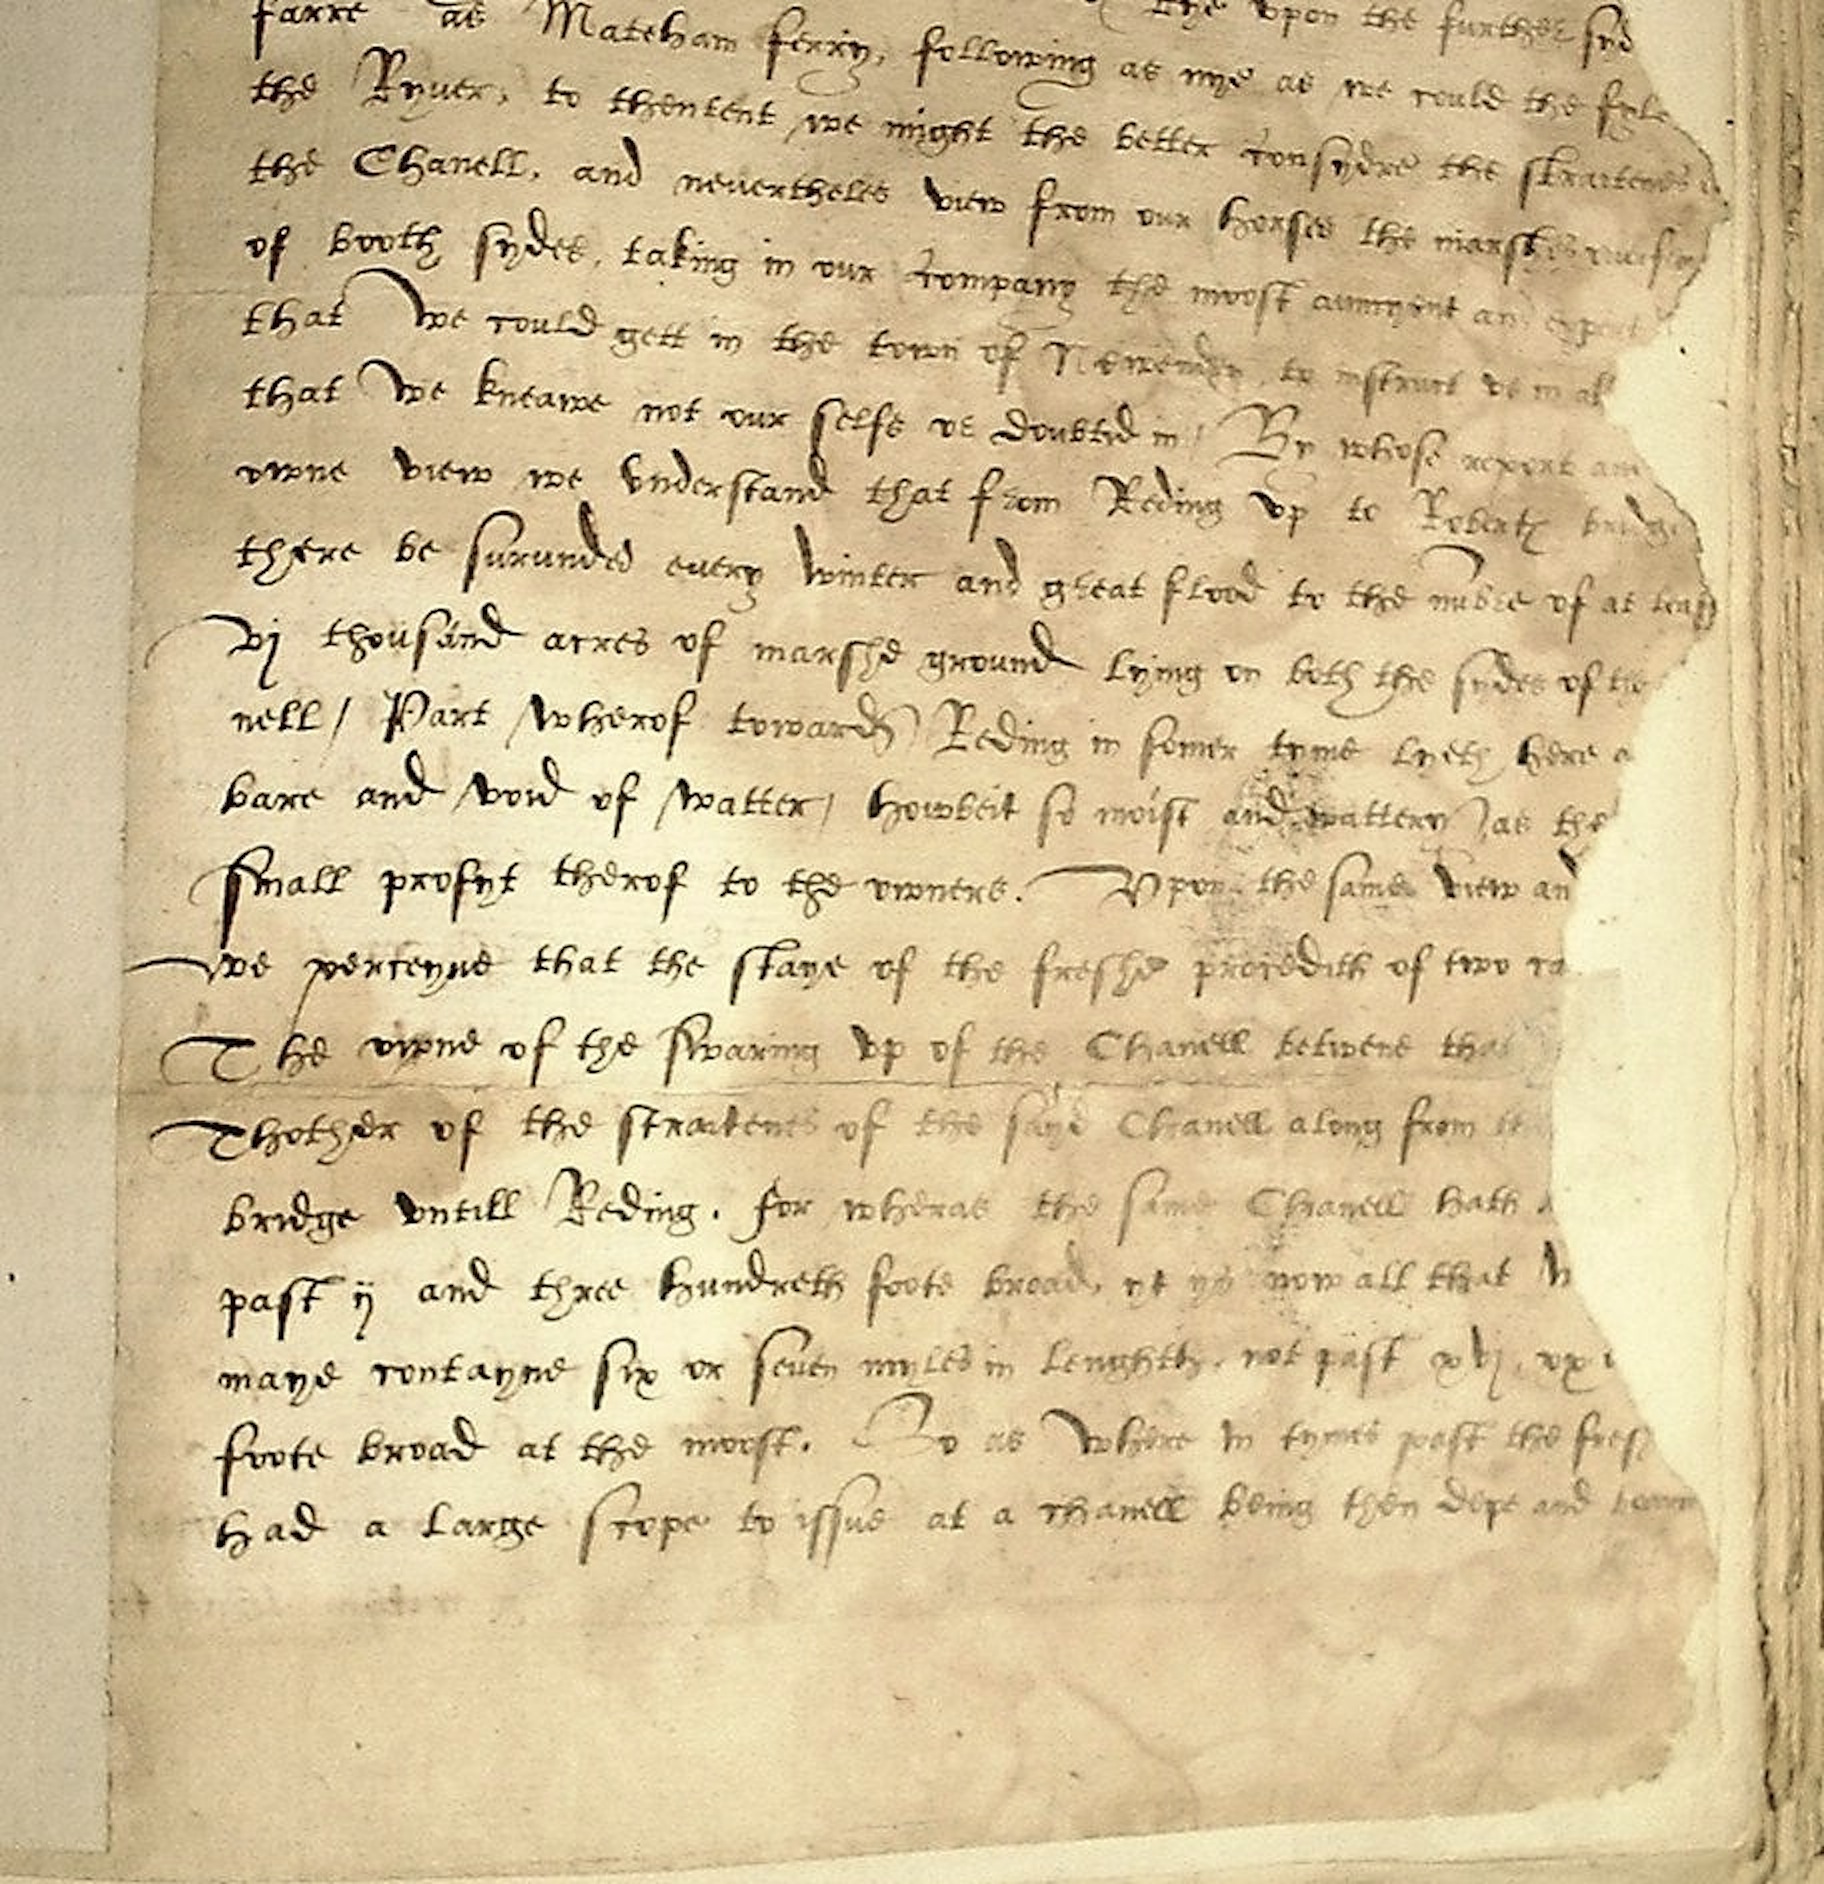 farre as Mateham ferry, following as nye as we could the
lye vpon the further syd
the Ryver, to thentent we might the better consydre the straitenes
the Chanell, and nevertheles view from our horses the marshes
of booth sydes, taking in our company the moost auncyent and expert
that we could gett in the town of Newenden, to instruct vs in all
that we kneawe not our selfs or doubted in / By whose report and
owne view we vnderstand that from Reding vp to Robertes bridge
there be surunded every winter and great flood to the nubre of at least
vj thousand acres of marshe ground lying on both the sydes of the
nell / Part wherof towardes Reding in somer tyme lyeth here
bare and void of watter / howbeit so moist and wattery as the
small profyt therof to the owners. Vpon the same view and
we perceyve that the staye of the freshe procedith of two
The owne of the swaring vp of the Chanell betwene that
Thother of the straitenes of the sayd Chanell along from
bridge vntill Reding. for wheras the same Chanell hath
past ij and three hundreth foote broad, yt ys now all that
maye contayne six or seven myles in lenghth, not past xvj, xx
foote broad at the moost. So as where in tymes past the fresh
had a large scope to issue at a chanell being then depe and